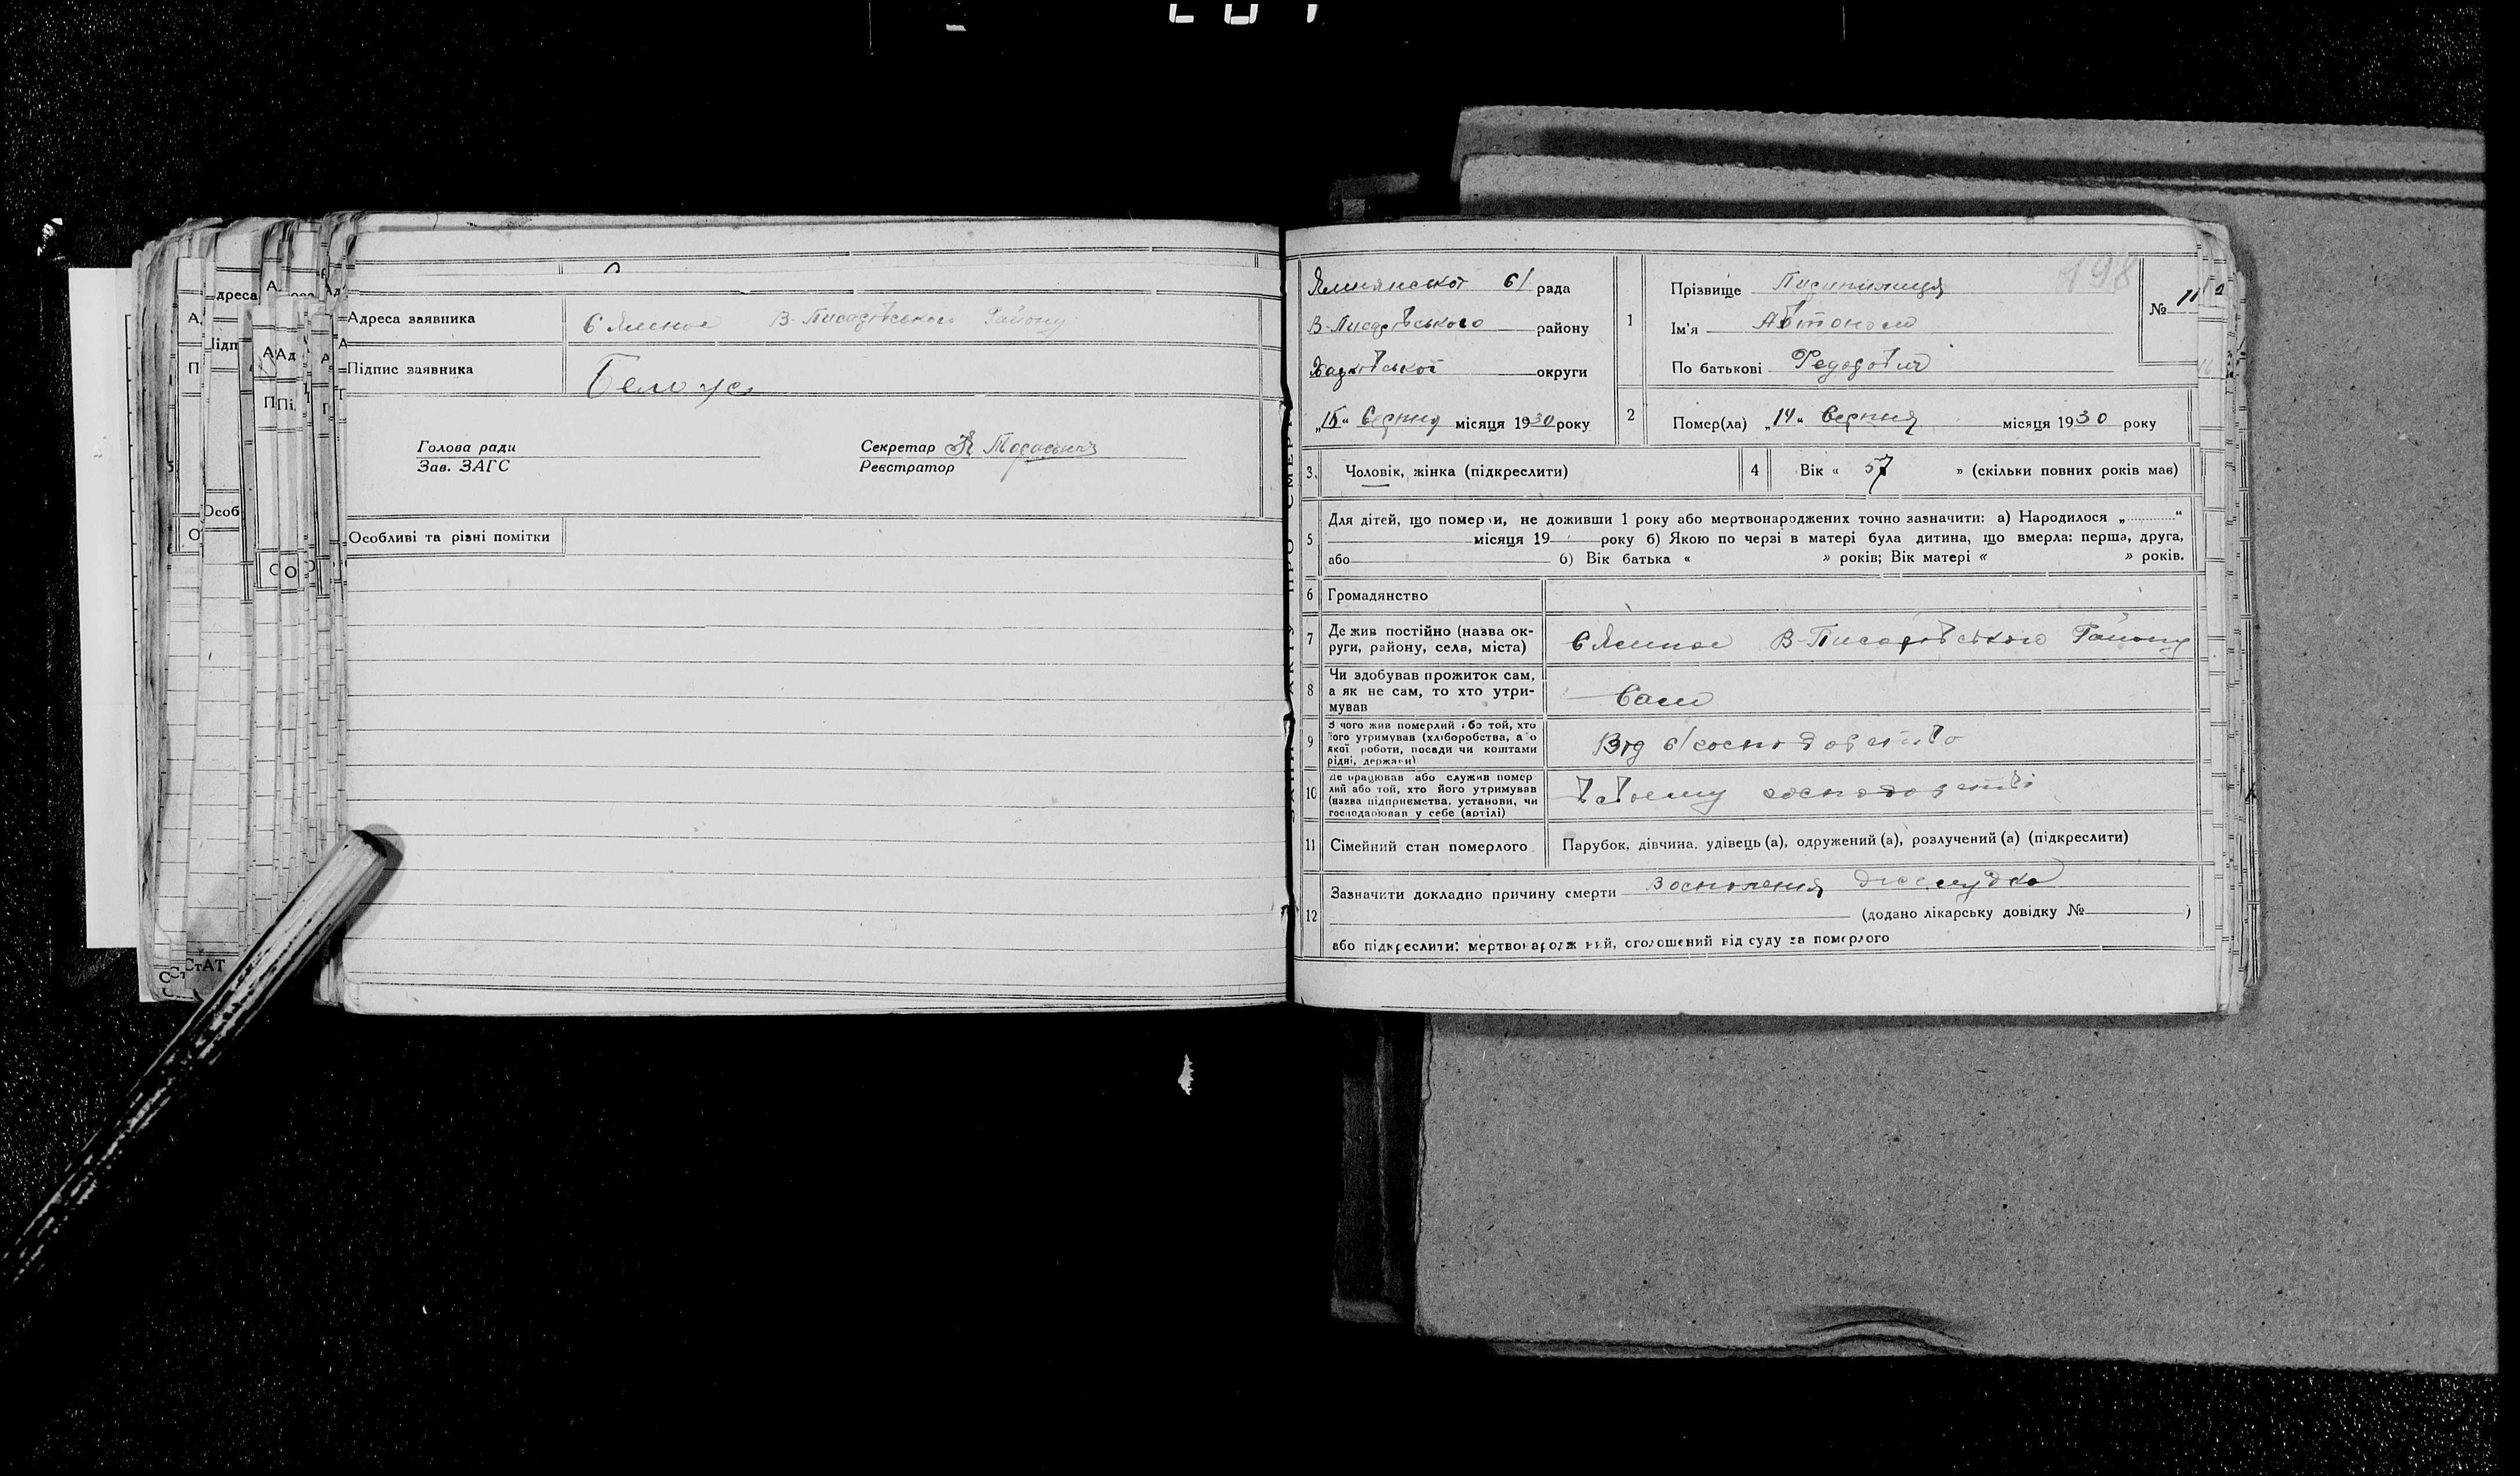 Адреса заявника с Ямное В-Писарівського Району
Підпис заявника Белоус
Голова ради
Зав. ЗАГС
Секретар
Реєстратор
Особливі та різні помітки
Ямнянської с/ рада
В-Писарівського району
Харківської округи
„15“ Серпня місяця 1930 року
1
Прізвище
Ім'я Автоном
По батькові Федорович
198
№ 11
2
Помер(ла) „14“ Серпня місяця 1930 року
3. Чоловік, жінка (підкреслити)
4 Вік « 57 » (скільки повних років мав)
5
Для дітей, що померли, не доживши 1 року або мертвонароджених точно зазначити: а) Народилося „ “
місяця 19 року б) Якою по черзі в матері була дитина, що вмерла: перша, друга,
або б) Вік батька « » років; Вік матері « » років.
6 Громадянство
7 Де жив постійно (назва ок-
руги, району, села, міста)
с Ямное В-Писарівського Району
8 Чи здобував прожиток сам,
а як не сам, то хто утри-
мував
Сам
9 З чого жив померлий або той, хто
його утримував (хліборобства, або
якої роботи, посади чи коштами
рідні, держави)
Від с/господарство
10 Де працював або служив помер
лий або той, хто його утримував
(назва підприємства, установи, чи
господарював у себе (артілі)
В своему господарстві
11 Сімейний стан померлого Парубок, дівчина, удівець (а), одружений (а), розлучений (а) (підкреслити)
12
Зазначити докладно причину смерти Восполения жолудка
(додано лікарську довідку № )
або підкреслити: мертвонароджений, оголошений від суду за померлого